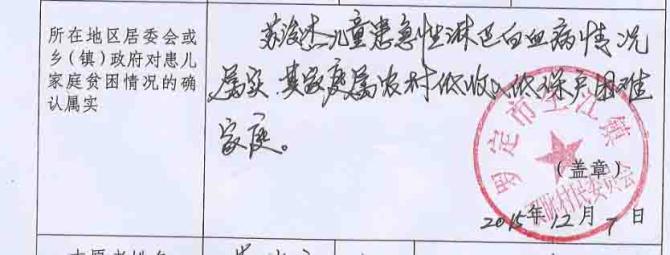 所在地区居委会或
乡（镇）政府对患儿
家庭贫困情况的确
认属实
苏浚杰儿童患急性淋巴白血病情况
属实，其家庭属农村低收入低保户困难
家庭。
罗定市 江镇
村民委员会
（盖章）
2015年12月7日